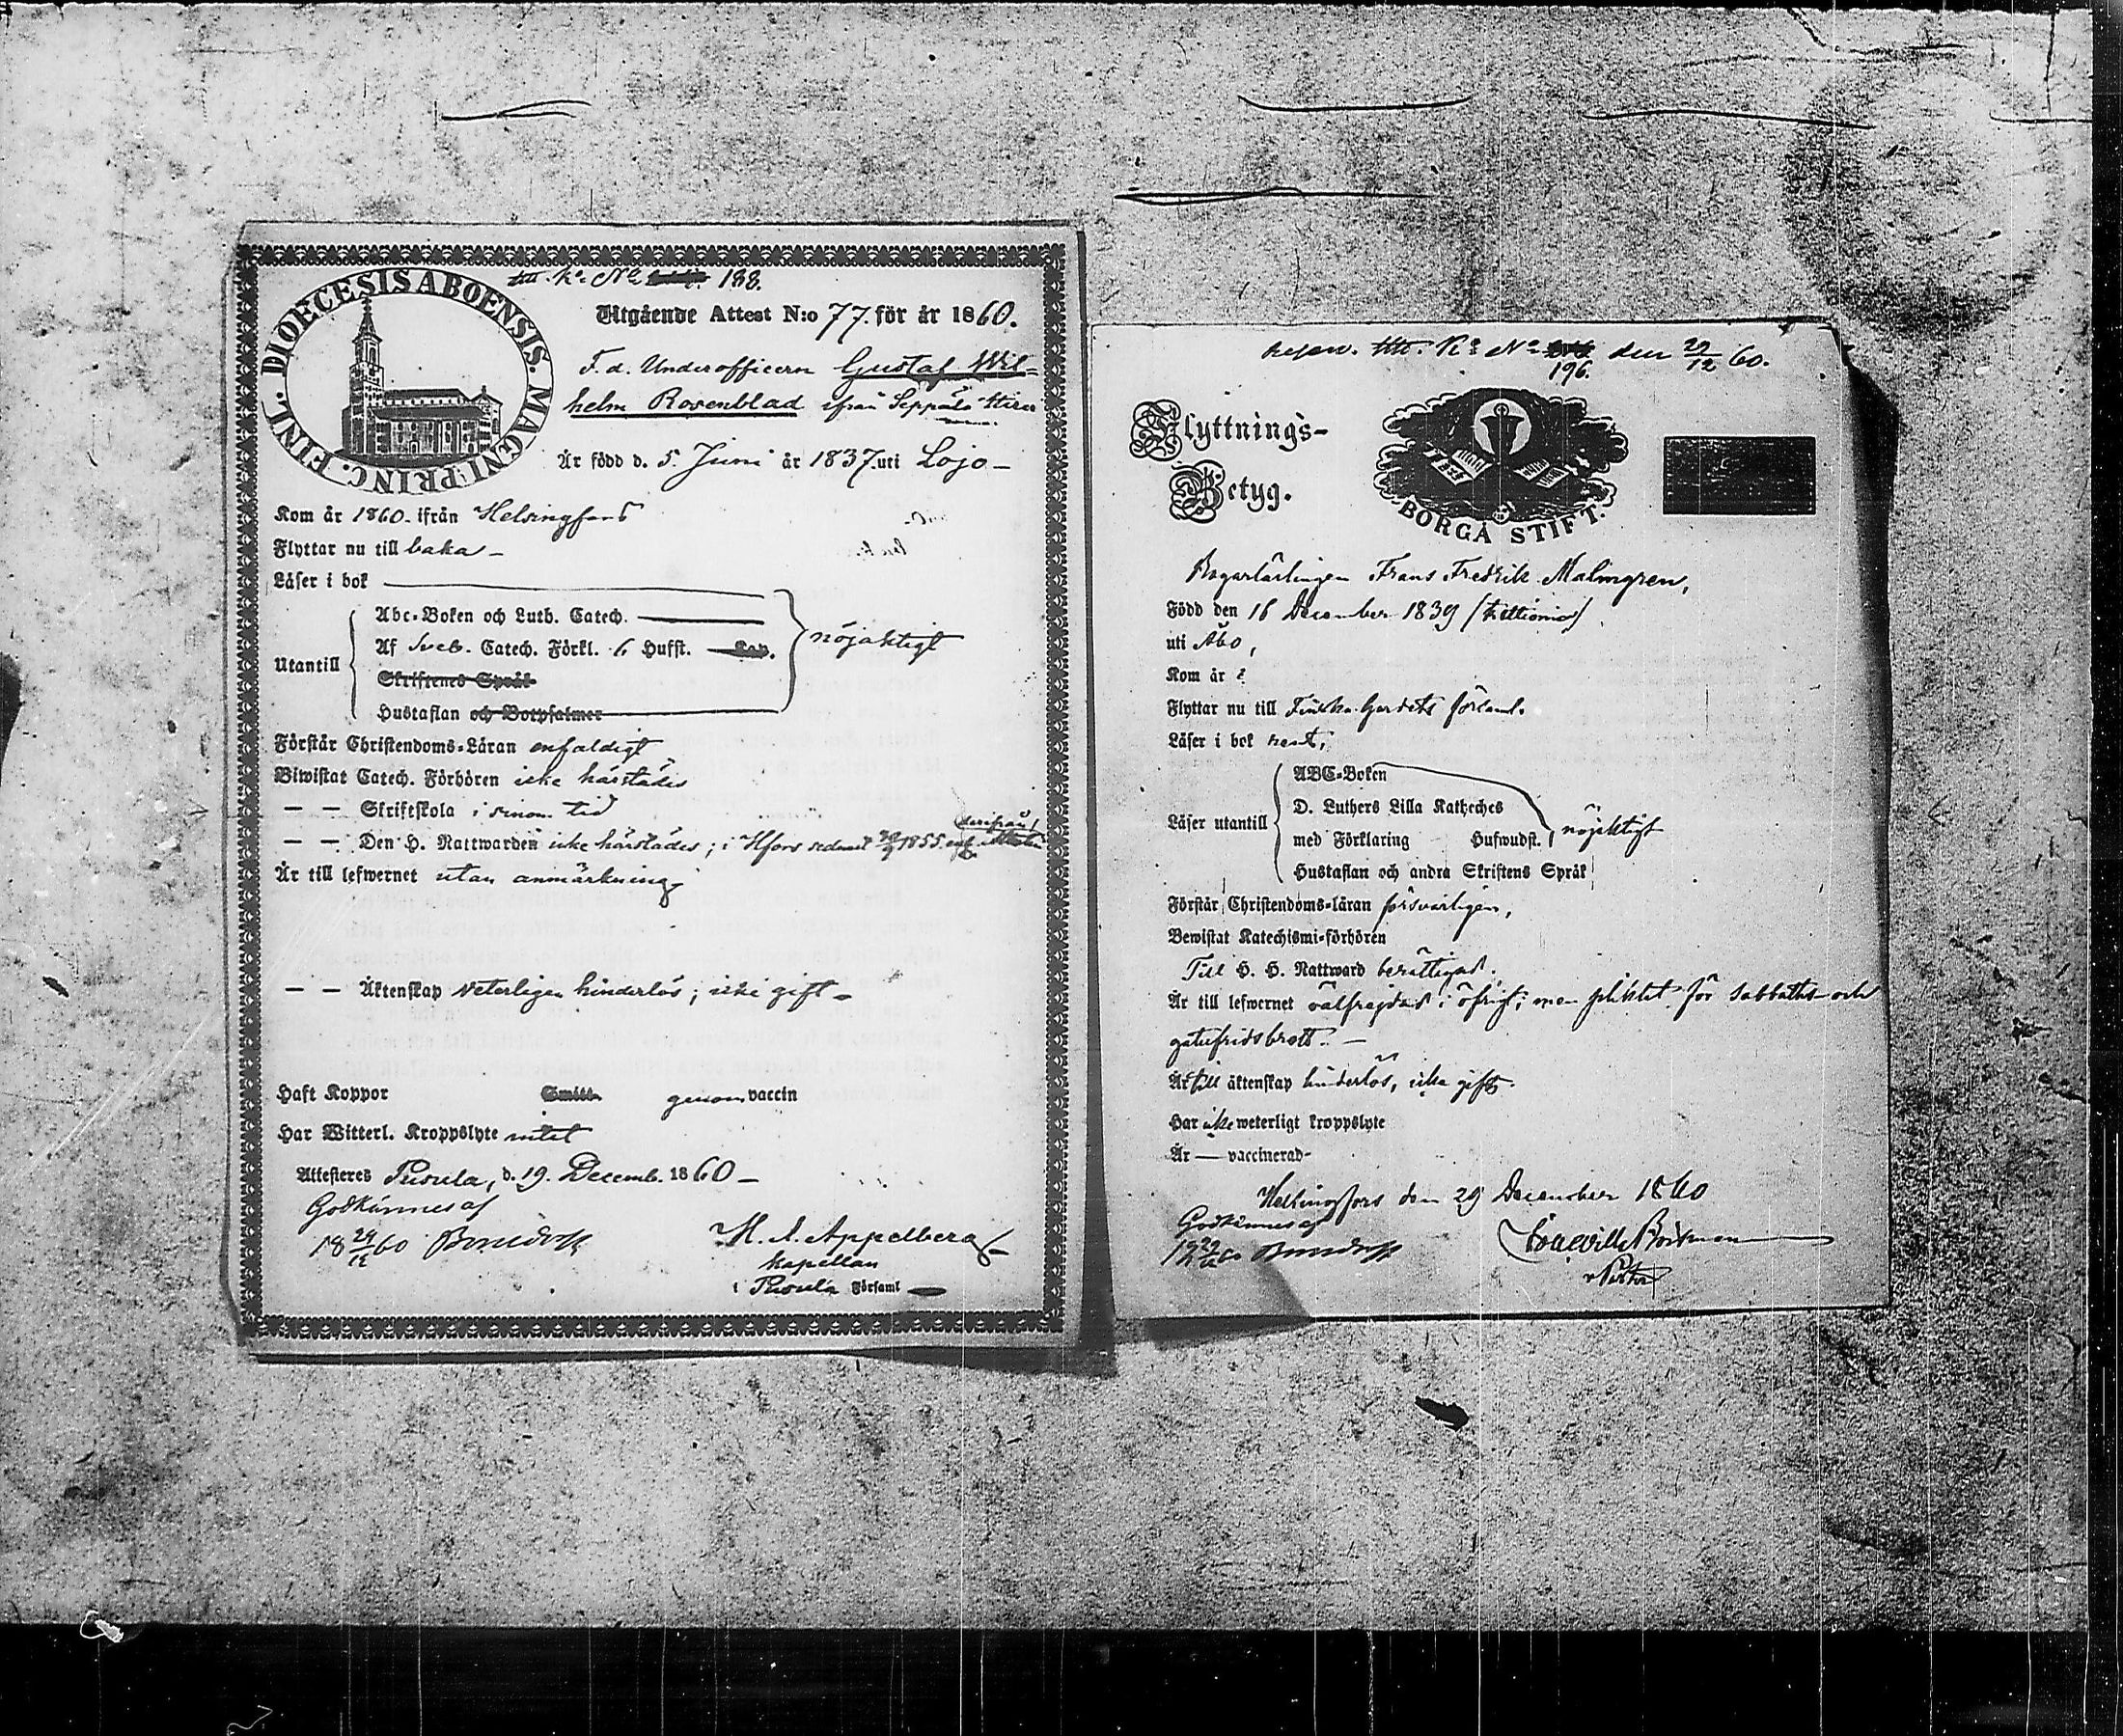 DIOECESIS ABOENSIS. MAGNI PRINC. FINL.
till K:a No 188.
Utgående Attest N:o 77. för år 1860.
F. d. Underofficern Gustaf Wil=
helm Rosenblad ifrån Seppälä
Är född d. 5. Juni år 1837. uti Lojo –
Kom år 1860. ifrån Helsingfors
Flyttar nu till baka –
Läser i bok
Abc-Boken och Luth. Catech.
Utantill
Af Sveb. Catech. Förkl. 6 Hufst. Cap.
nöjaktigt
Skriftenes Språk
Hustaflan och Botpsalmer
Förstår Christendoms-Läran enfaldigt
Biwistat Catech. Förhören icke härstädes
– – Skriftskola i sinom tid
– – Den H. Nattwarden icke härstädes; i Hfors sednast 1855. enl. därifrån
Är till lefwernet utan anmärkning
– – Äktenskap veterligen hinderlös; icke gift –
Haft Koppor Smitt- genom vaccin
Har Witterl. Kroppslyte intet
Attesteres Pusula, d. 19. Decemb. 1860 –
Godkännes af
18 29/12 60 Bonsdorff
H. A. Appelberg
Kapellan
i Pusula Församl
till K:a No 196. den 29/12 60.
Flyttnings-
Betyg.
BORGÅ STIFT.
Bagarlärlingen Frans Fredrik Malmgren,
Född den 16 December 1839 (trettionio)
uti Åbo,
Kom år ?
Flyttar nu till Finska Gardets förseml.
Läser i bok rent,
ABC-Boken
D. Luthers Lilla Katheches
Läser utantill
med Förklaring Hufwudst.
nöjaktigt
Hustaflan och andra Skriftens Språk
Förstår Christendoms-läran försvarligen,
Bewistat Katechismi-förhören
Till H. H. Nattward berättigad.
Är till lefwernet välfrejdad i öfrigt; men pliktat för sabbaths- och
gatufridsbrott. –
Är till äktenskap hinderlös, icke gift.
Har icke weterligt kroppslyte
Är — vaccinerad-
Helsingfors den 29 December 1860
Godkännes af
18 29/12 60 Bonsdorff